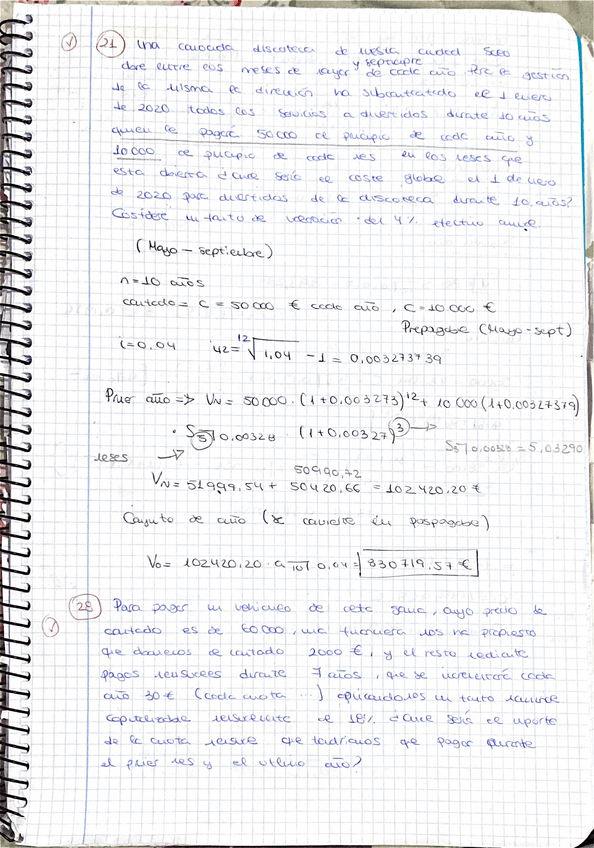 21 Una conocida discoteca de nuestra ciudad solo
abre entre los meses de mayo y septiembre de cada año. Para la gestión
de la misma la dirección ha subcontratado el 1 enero
de 2020 todos los servicios a divertidos durante 10 años
quien le pagará 50 000 al principio de cada año y
10 000 al principio de cada mes en los meses que
esta abierta ¿Cuál sería el coste global el 1 de enero
de 2020 para divertidos de la discoteca durante 10 años?
Considere un tanto de valoración del 4% efectivo anual
(Mayo - septiembre)
n = 10 años
contado = C = 50 000 € cada año, C = 10 000 €
Prepagable (Mayo-sept)
i = 0,04 i12 = 12√1,04 - 1 = 0,003273739
Primer año => VN = 50 000 · (1+0,003273)^12 + 10 000 (1+0,00327379)
· S5 0,00328 · (1+0,00327)^3 → S5 0,00328 = 5,03290
meses →
50990,72
VN = 51999,54 + 50420,66 = 102 420,20 €
Conjunto de año (se convierte en pospagable)
V0 = 102420,20 · a10 0,04 = 830719,57 €
28 Para pagar un vehículo de alta gama, cuyo precio de
contado es de 60 000, una financiera nos ha propuesto
que daremos de contado 2000 €, y el resto mediante
pagos mensuales durante 7 años, que se incrementará cada
año 30 € (cada cuota ...) aplicandonos un tanto nominal
capitalizable mensualmente al 18% ¿Cuál sería el importe
de la cuota mensual que tendríamos que pagar durante
el primer mes y el último año?